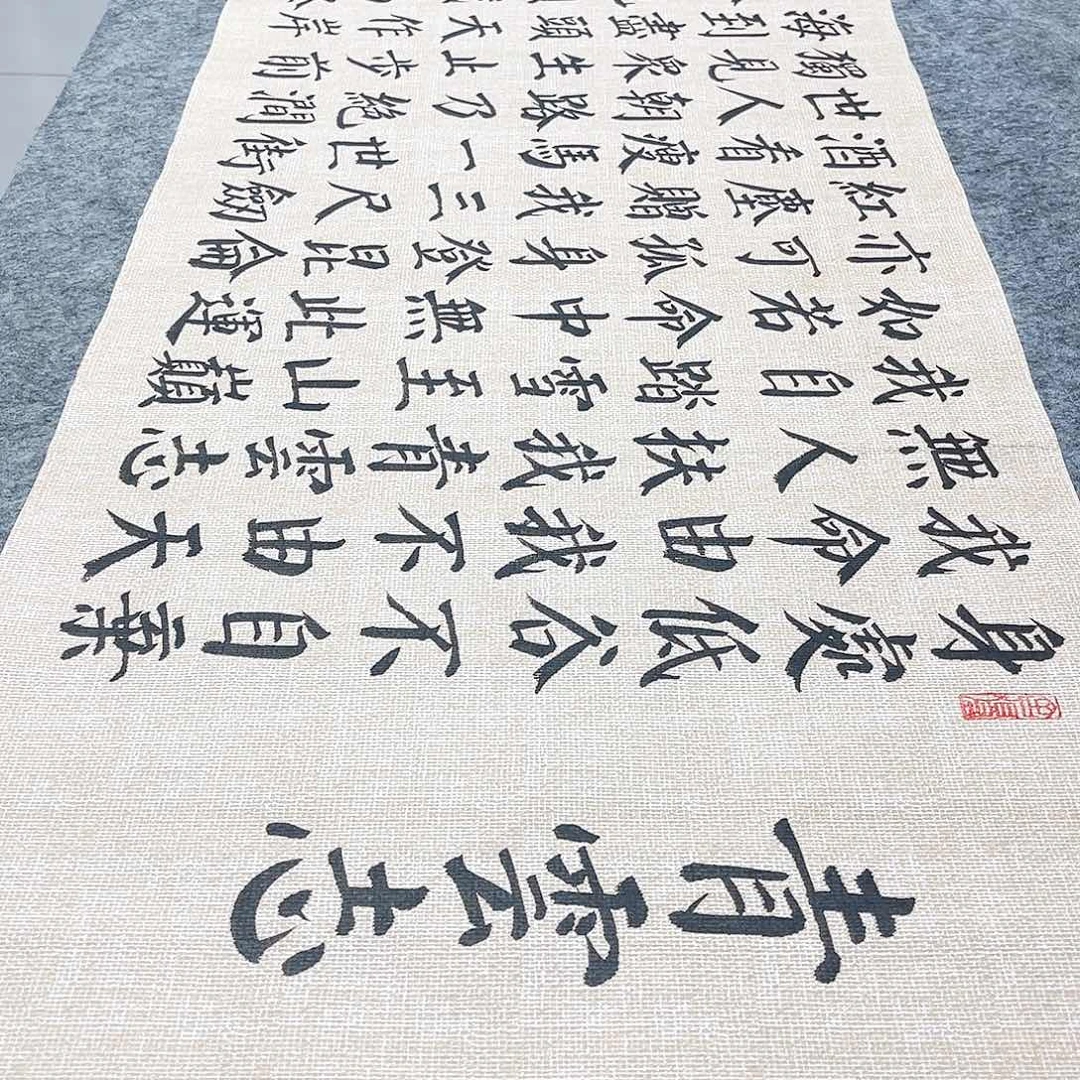 青雲志
身處低谷不自棄
我命由我不由天
無人扶我青雲志
我自踏雪至山巔
如若命中無此運
亦可孤身登昆侖
紅塵贈我三尺劒
酒看瘦馬一世街
世人朝路乃絕澗
獨見衆生止步前
海到盡頭天作岸